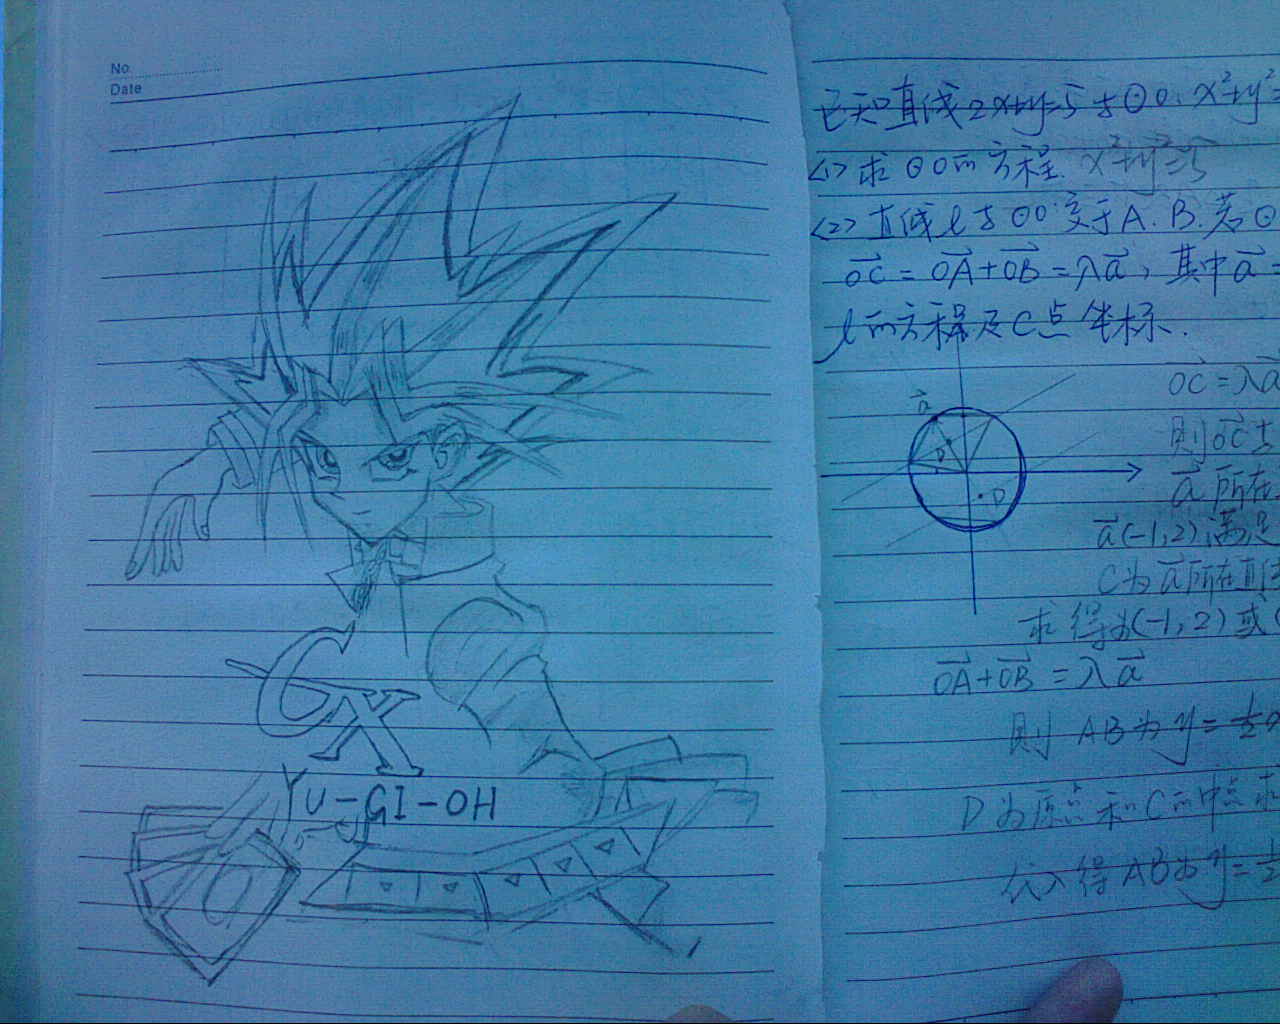 No.
Date
GX
YU-GI-OH
已知直线2x+y=5与⊙O:x²+y²=
<1>求⊙O的方程. x²+y²=5
<2>直线l与⊙O交于A.B.若⊙
OC=OA+OB=λa,其中a=
l的方程及C点坐标.
OC=λa
a
则OC与
D
a所在
a(-1,2)满足
C为a所在直线
求得为(-1,2)或(
OA+OB=λa
则AB为y=½x
D为原点和C的中点 求
代入得AB为y=½